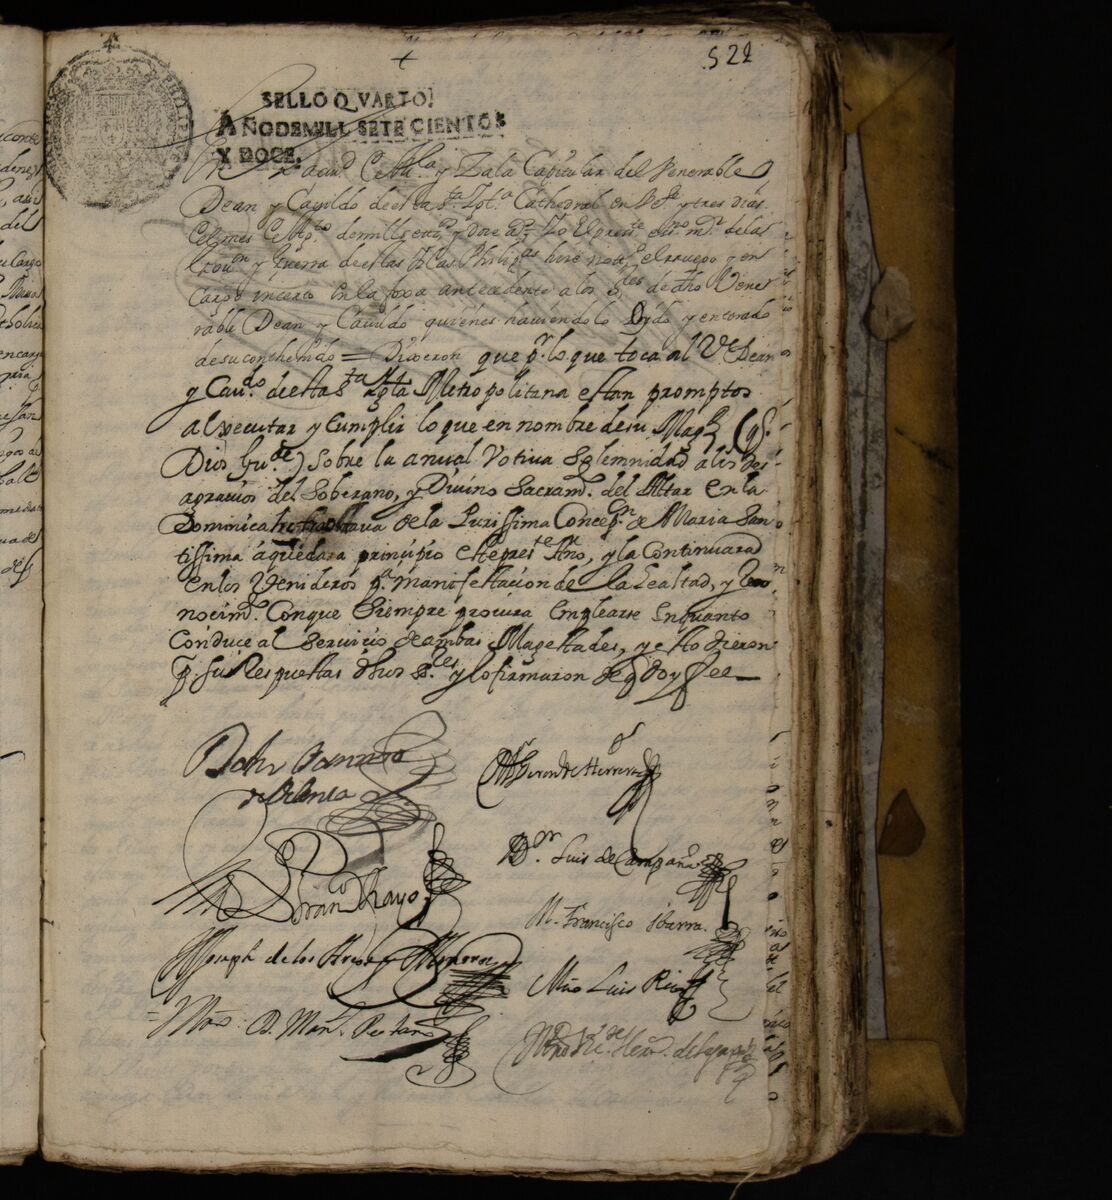 522
SELLO QVARTO
AÑO DE MILL SETECIENTOS
Y DOCE.
y Sala Capitular del Venerable
Dean y Cavildo de esta Sta Igla Cathedral en Vte y tres dias
del mes de de mill setos y doce as Yo El preste essno mr de las
y Guerra de estas Yslas Philipas hise notº el ruego y en
cargo incerto en la foxa antecedente a los Sres de dho Vene
rable Dean y Cavildo quienes haviendolo Oydo y entendo
de su conthenido = Dixeron que pr lo que toca al Ve Dean
y Cavdo de esta Sta Igla Metropolitana estan promptos
a executar y Cumplir lo que en nombre de su Magd (q
Dios Gude) sobre la anual Votiva Solemnidad a los des
agravios del Soberano, y Divino Sacramto del Altar en la
Dominica infraoctava de la Purissima Concepn de Maria San
tissima a que dara principio este preste Año, y la Continuara
en los Venideros pa manifestacion de la Lealtad, y Reco
nocimto Con que Siempre procura emplearse en quanto
Conduce al Servicio de ambas Magestades, y esto dieron
p. su Respuesta dhos Sres y lo firmaron de q doy fee
de Herrera
Dn Luis de Campaña
Franco Rayo
M. Francisco Ybarra
Joseph de los
Mro Luis Rico
Mro D. Manl